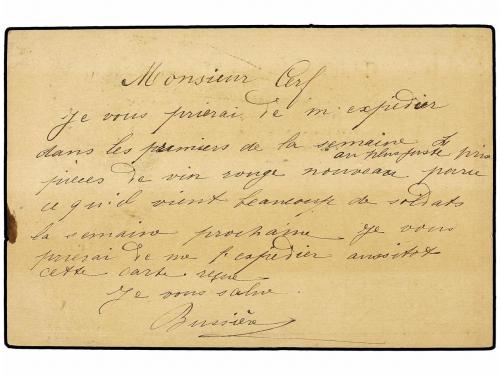 Monsieur Cerf
Je vous prierai de m expédier
dans les premiers de la semaine
au plus juste prix
pièces de vin rouge nouveau
ce qu'il vient beaucoup de soldats
la semaine prochaine Je vous
prierai de me l'expédier aussitot
cette carte reçue
Je vous salue
Bussière